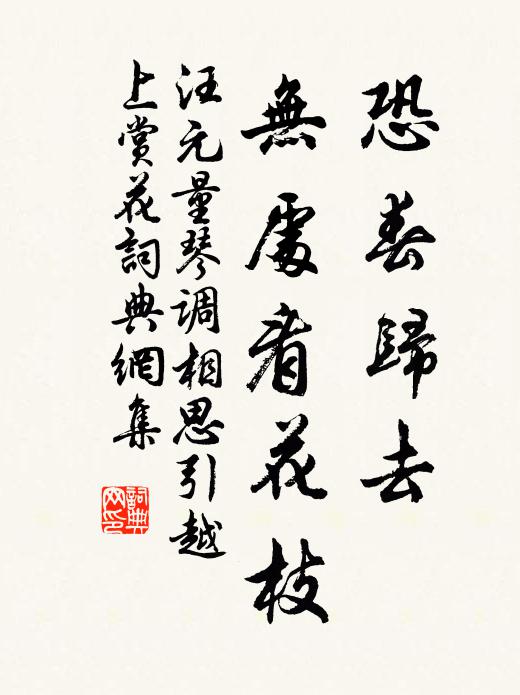 恐春歸去
無處看花枝
汪元量琴調相思引越
上賞花詞典網集
詞典
网印